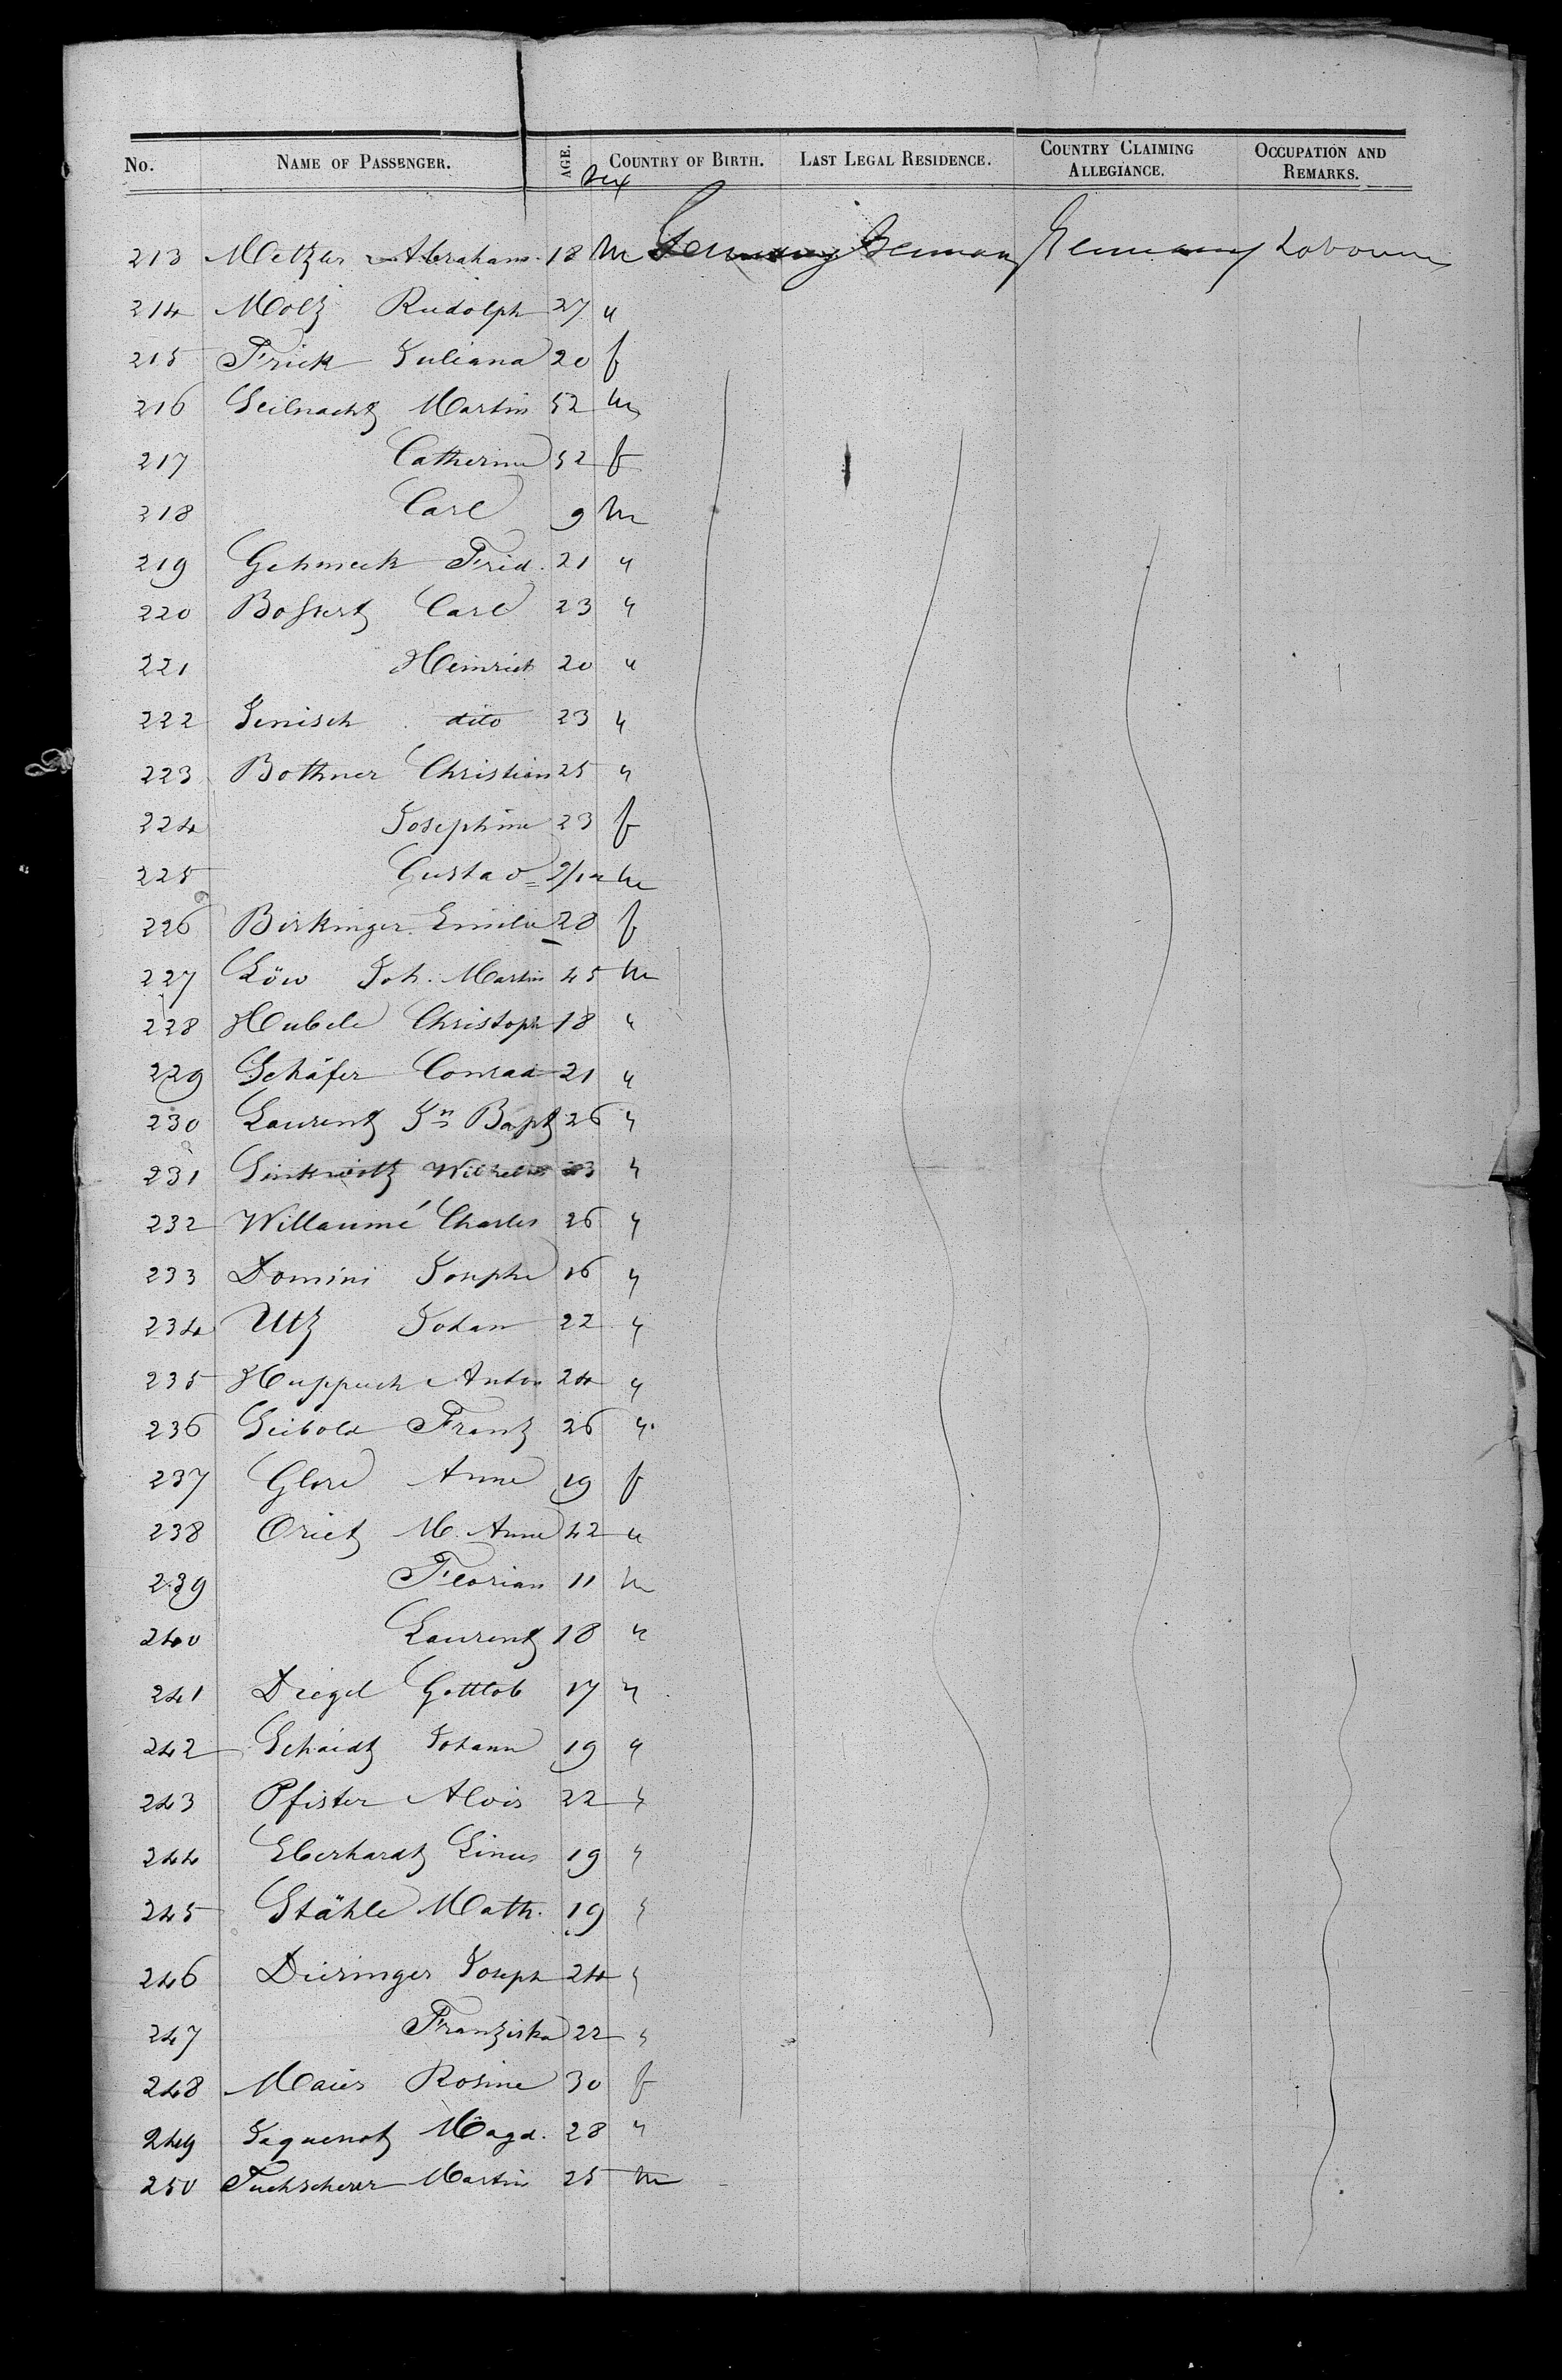 No. NAME OF PASSENGER. AGE. Sex COUNTRY OF BIRTH. LAST LEGAL RESIDENCE. COUNTRY CLAIMING ALLEGIANCE. OCCUPATION AND REMARKS.
213 Metzler Abraham 18 m Germany Germany Germany Labourer
214 Molz Rudolph 27 "
215 Frick Juliana 20 f
216 Seilnacht Martin 52 m
217 Catherine 52 f
218 Carl 9 m
219 Schmeck Frid. 21 "
220 Bossert Carl 23 "
221 Heinrich 20 "
222 Jenisch dito 23 "
223 Bothner Christian 25 "
224 Josephine 23 f
225 Gustav 9/12 m
226 Birkinger Emilie 28 f
227 Löw Joh. Martin 45 m
228 Hubele Christoph 18 "
229 Schäfer Conrad 21 "
230 Laurent Jn Bapt 26 "
231 Wilhelm "
232 Willaumé Charles 26 "
233 Domini Joseph 16 "
234 Utz Johan 22 "
235 Huppuch Anton 24 "
236 Seibold Franz 26 "
237 Gloré Anne 19 f
238 Oriet M. Anne 42 "
239 Florian 11 m
240 Laurent 18 "
241 Diegel Gottlob 17 "
242 Schaidt Johann 19 "
243 Pfister Alois 22 "
244 Eberhardt Linus 19 "
245 Stähle Math. 19 "
246 Dieringer Joseph 24 "
247 Franziska 22 "
248 Maier Rosine 30 f
249 Jaquenot Magd. 28 "
250 Tuchscherer Martin 25 m